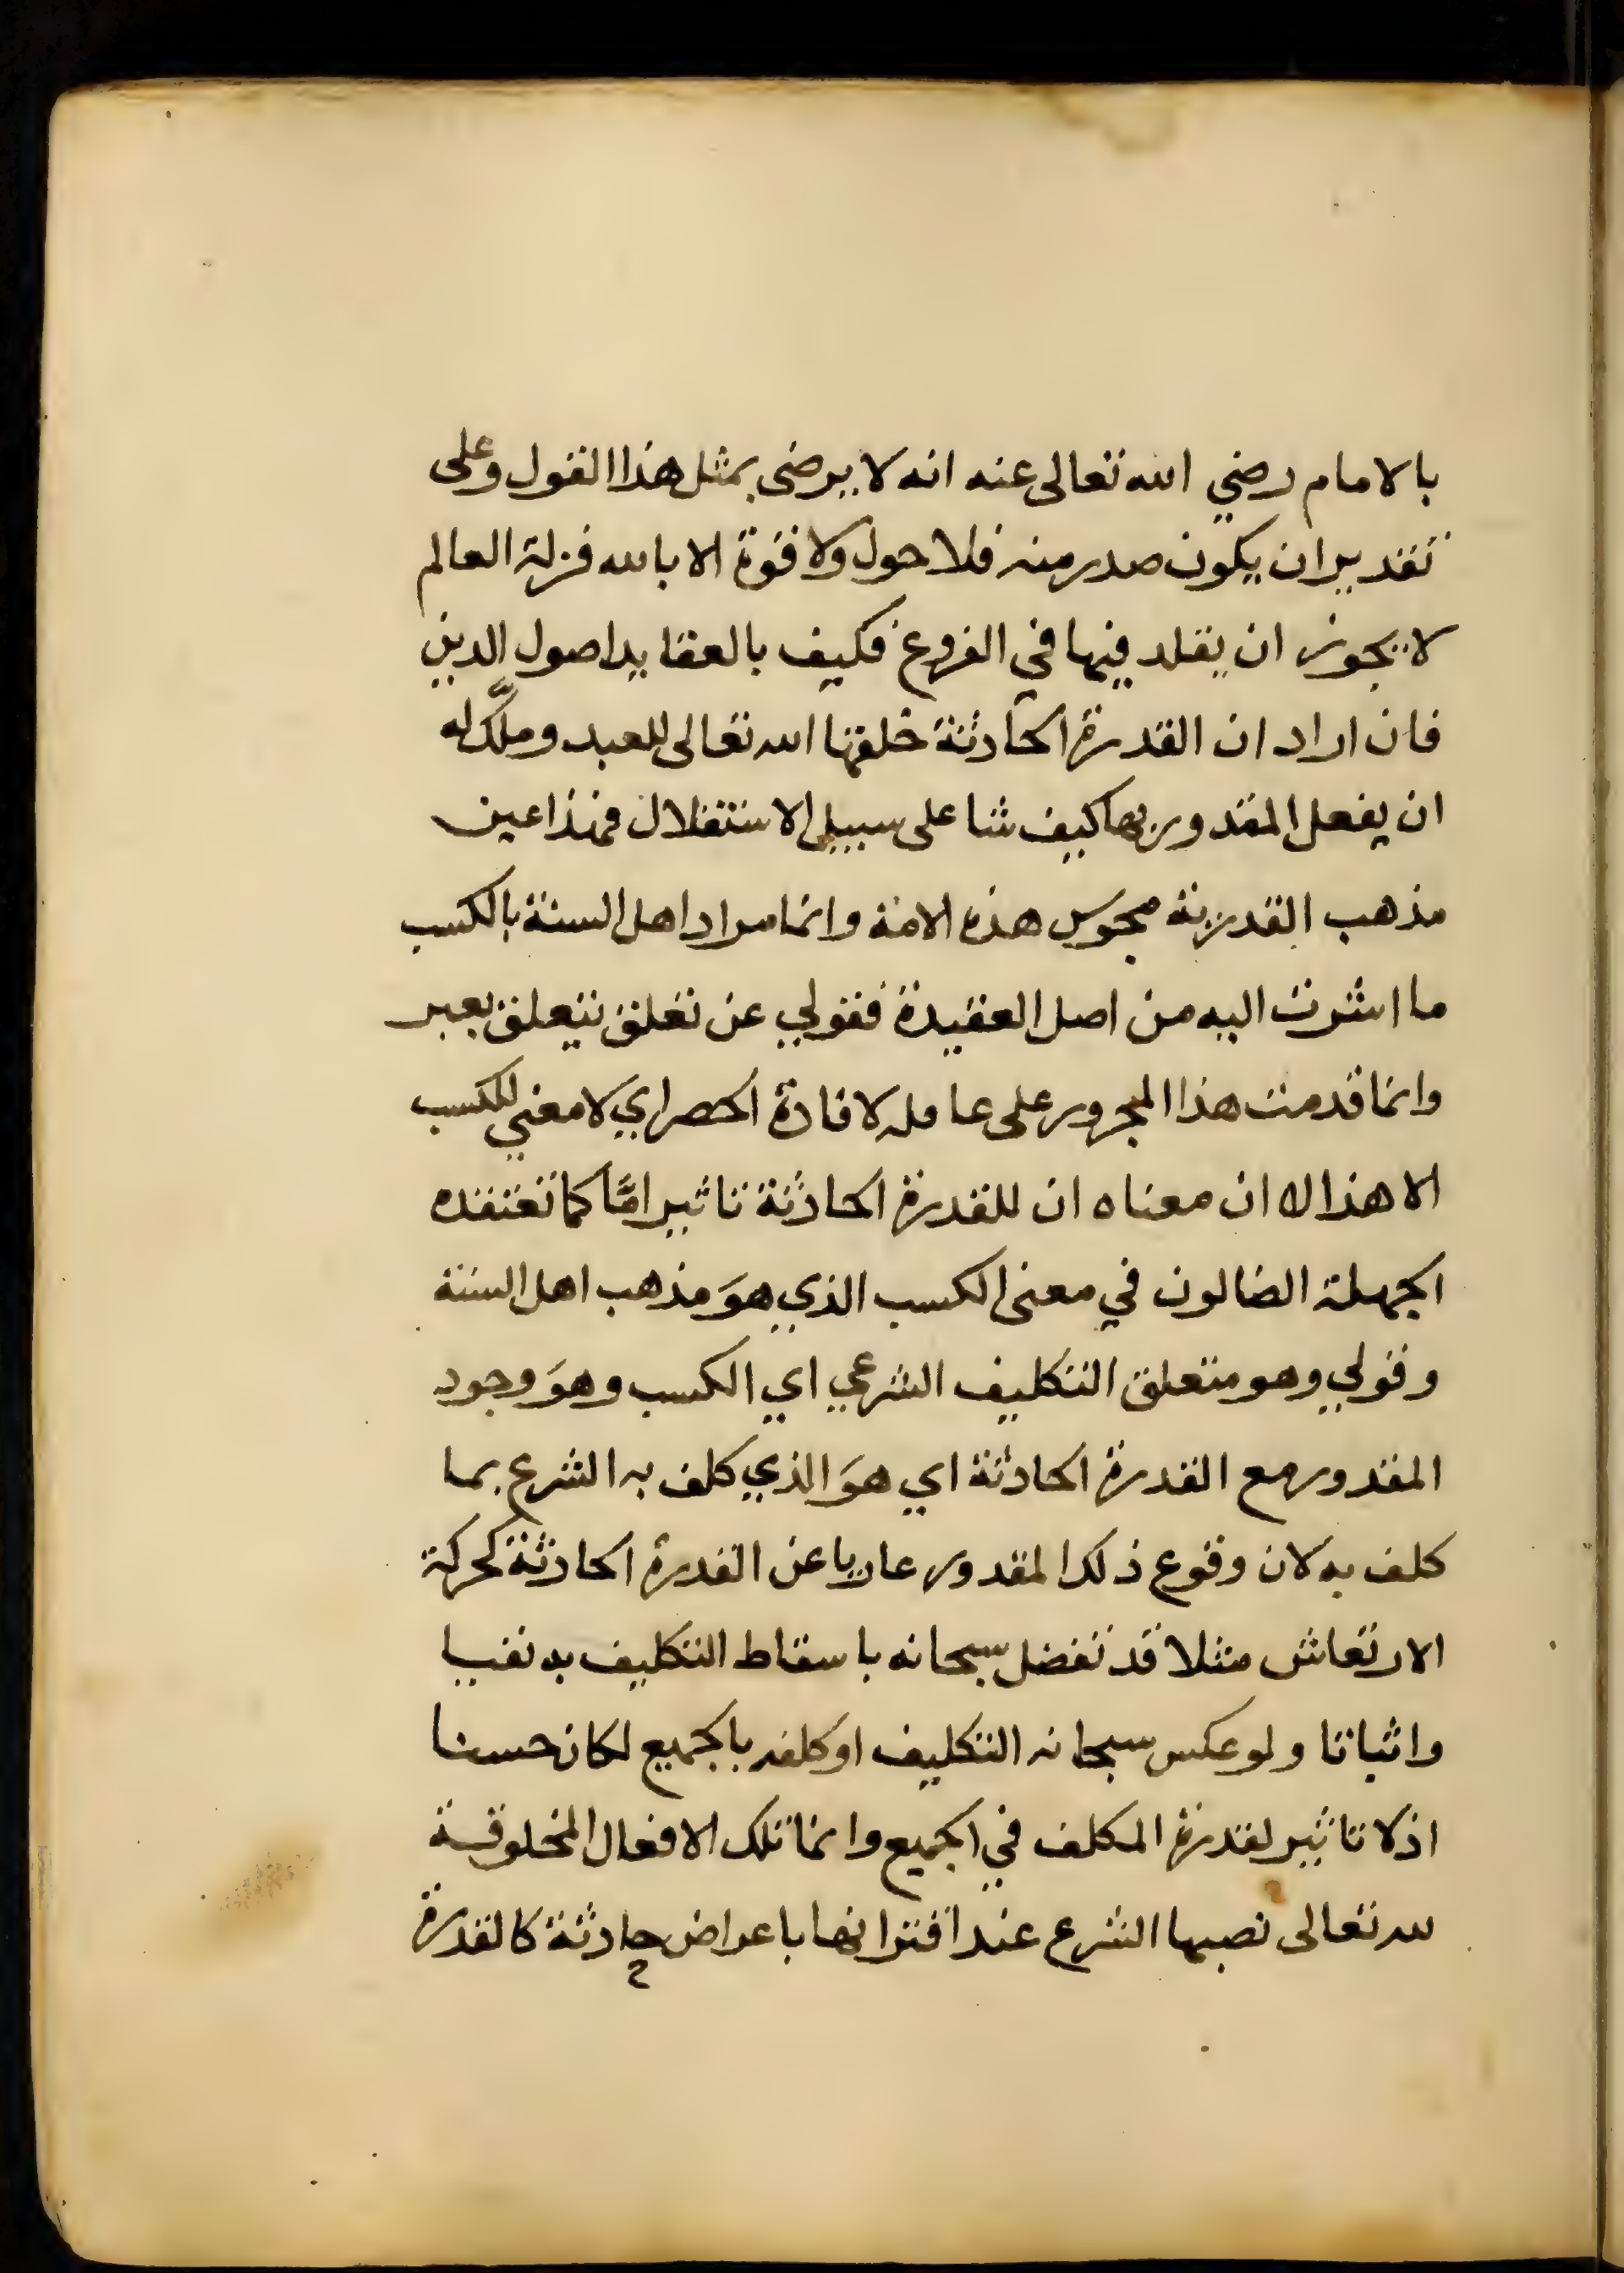 بالامام رضي الله تعالى عنه انه لا يرضى بمثل هذا القول وعلى
تقدير ان يكون صدر منه فلا حول ولا قوة الا بالله فزلة العالم
لا يجوز ان يقلد فيها في الفروع فكيف بالعقايد اصول الدين
فان اراد ان القدرة الحادثة خلقها الله تعالى للعبد وملَّك له
ان يفعل المقدور بها كيف شا على سبيل الاستقلال فهذا عين
مذهب القدرية مجوس هذه الامة وانما مراد اهل السنة بالكسب
ما اشرت اليه من اصل العقيدة فقولي عن تعلق يتعلق بعبر
وانما قدمت هذا المجرور على عامله لافادة الحصر اي لا معني للكسب
الا هذا لا ان معناه ان للقدرة الحادثة تاثير امَّا كما تعتقده
الجهلة الضالون في معنى الكسب الذي هوَ مذهب اهل السنة
وقولي وهو متعلق التكليف الشرعي اي الكسب وهوَ وجود
المقدور مع القدرة الحادثة اي هوَ الذي كلف به الشرع بما
كلف به لان وقوع ذلك المقدور عاريا عن القدرة الحادثة كحركة
الارتعاش مثلا قد تفضل سبحانه باسقاط التكليف به نفيا
واثباتا ولو عكس سبحانه التكليف او كلف بالجميع لكان حسنا
اذ لا تاثير لقدرة المكلف في الجميع وانما تلك الافعال المخلوقة
لله تعالى نصبها الشرع عند اقترانها باعراض حادثة كالقدرة